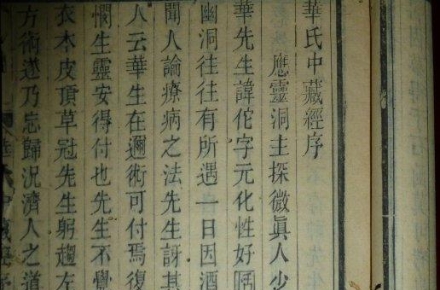 華氏中藏經序
應靈洞主探微真人少
華先生諱佗字元化性好
幽洞往往有所遇一日因酒
聞人論療病之法先生訝其
人云華生在邇術可付焉復
憫生靈安得付也先生不覺
衣木皮頂草冠先生躬趨左
方術遂乃忘歸況濟人之道